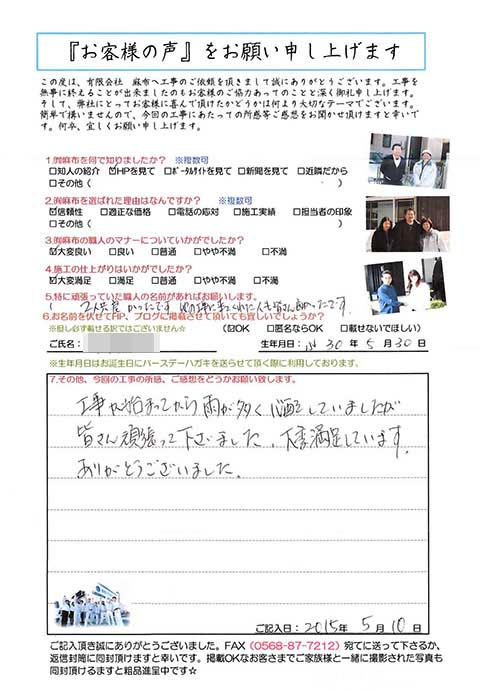 『お客様の声』をお願い申し上げます
この度は、有限会社 麻布へ工事のご依頼を頂きまして誠にありがとうございます。工事を
無事に終えることが出来ましたのもお客様のご協力あってのことと深く御礼申し上げます。
そして、弊社にとってお客様に喜んで頂けたかどうかは何より大切なテーマでございます。
簡単で構いませんので、今回の工事にあたっての所感等ご感想をお聞かせ頂けますと幸いで
す。何卒、宜しくお願い申し上げます。
1.㈲麻布を何で知りましたか? ※複数可
□知人の紹介 ☑HPを見て □ポータルサイトを見て □新聞を見て □近隣だから
□その他( )
2.㈲麻布を選ばれた理由はなんですか? ※複数可
☑信頼性 □適正な価格 □電話の応対 □施工実績 □担当者の印象
□その他( )
3.㈲麻布の職人のマナーについていかがでしたか?
☑大変良い □良い □普通 □やや不満 □不満
4.施工の仕上がりはいかがでしたか?
☑大変満足 □満足 □普通 □やや不満 □不満
5.特に頑張っていた職人の名前があればお願いします。
6.お名前を伏せてHP、ブログに掲載させて頂いても宜しいでしょうか?
※但し必ず載せる訳ではございません☆ (☑OK □匿名ならOK □載せないでほしい)
ご氏名: 生年月日: 30年 5月 30日
※生年月日はお誕生日にバースデーハガキを送らせて頂く際に利用しております。
7.その他、今回の工事の所感、ご感想をどうかお願い致します。
工事が始まってから雨が多く心配していましたが
皆さん頑張って下さいました。大変満足しています。
ありがとうございました。
ご記入日: 2015年 5月 10日
ご記入頂き誠にありがとうございました。FAX(0568-87-7212)宛てに送って下さるか、
返信封筒に同封頂けますと幸いです。掲載OKなお客さまでご家族様と一緒に撮影された写真も
同封頂けるますと粗品進呈中です☆